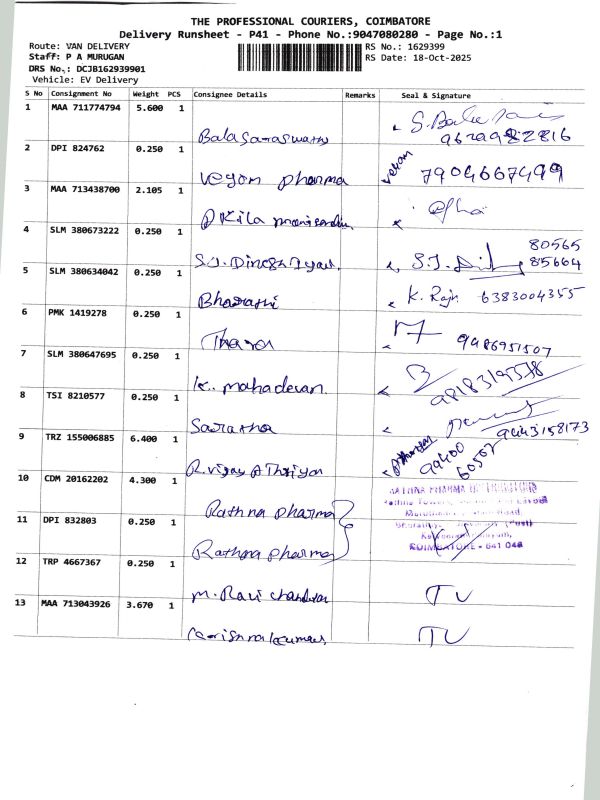 THE PROFESSIONAL COURIERS, COIMBATORE
Delivery Runsheet - P41 - Phone No.:9047080280 - Page No.:1
Route: VAN DELIVERY
RS No.: 1629399
Staff: P A MURUGAN
RS Date: 18-Oct-2025
DRS No.: DCJB162939901
Vehicle: EV Delivery
S No Consignment No Weight PCS Consignee Details Remarks Seal & Signature
1 MAA 711774794 5.600 1
Balasaraswathy
9629982816
2 DPI 824762 0.250 1
Vegan pharma
vegan 7904667499
3 MAA 713438700 2.105 1
4 SLM 380673222 0.250 1
80565
85664
5 SLM 380634042 0.250 1
Bharathi K. Raju 6383004355
6 PMK 1419278 0.250 1
9486951507
7 SLM 380647695 0.250 1
K. mahadevan
8 TSI 8210577 0.250 1
9443158173
9 TRZ 155006885 6.400 1
99400
60507
10 CDM 20162202 4.300 1
Rathna pharma
11 DPI 832803 0.250 1
Rathna pharma
COIMBATORE - 641 046
12 TRP 4667367 0.250 1
M. Ravi chandran TV
13 MAA 713043926 3.670 1
TV